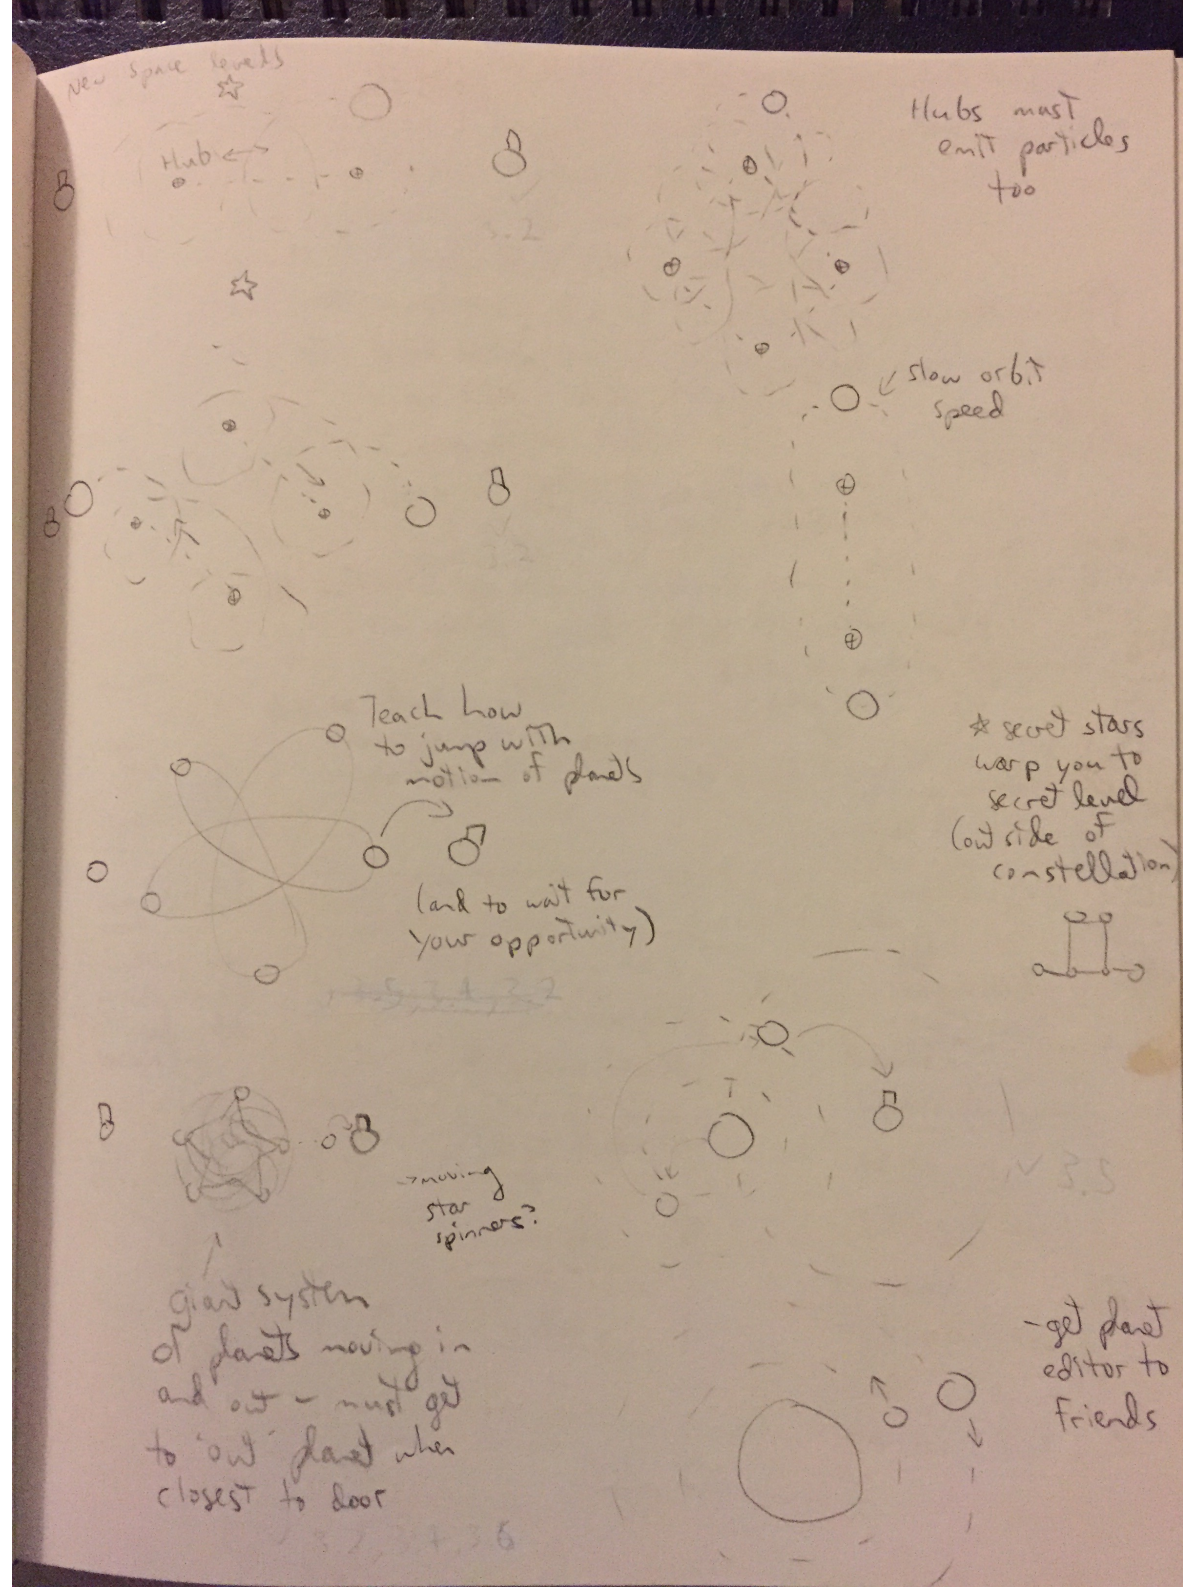 New space levels
Hub
3.2
Hubs must
emit particles
too
slow orbit
speed
3.2
Teach how
to jump with
motion of planets
(and to wait for
your opportunity)
* secret stars
warp you to
secret level
(outside of
constellation)
→moving
star
spinners?
3.5
Giant system
of planets moving in
and out - must get
to "out" planet when
closest to door
-get planet
editor to
friends